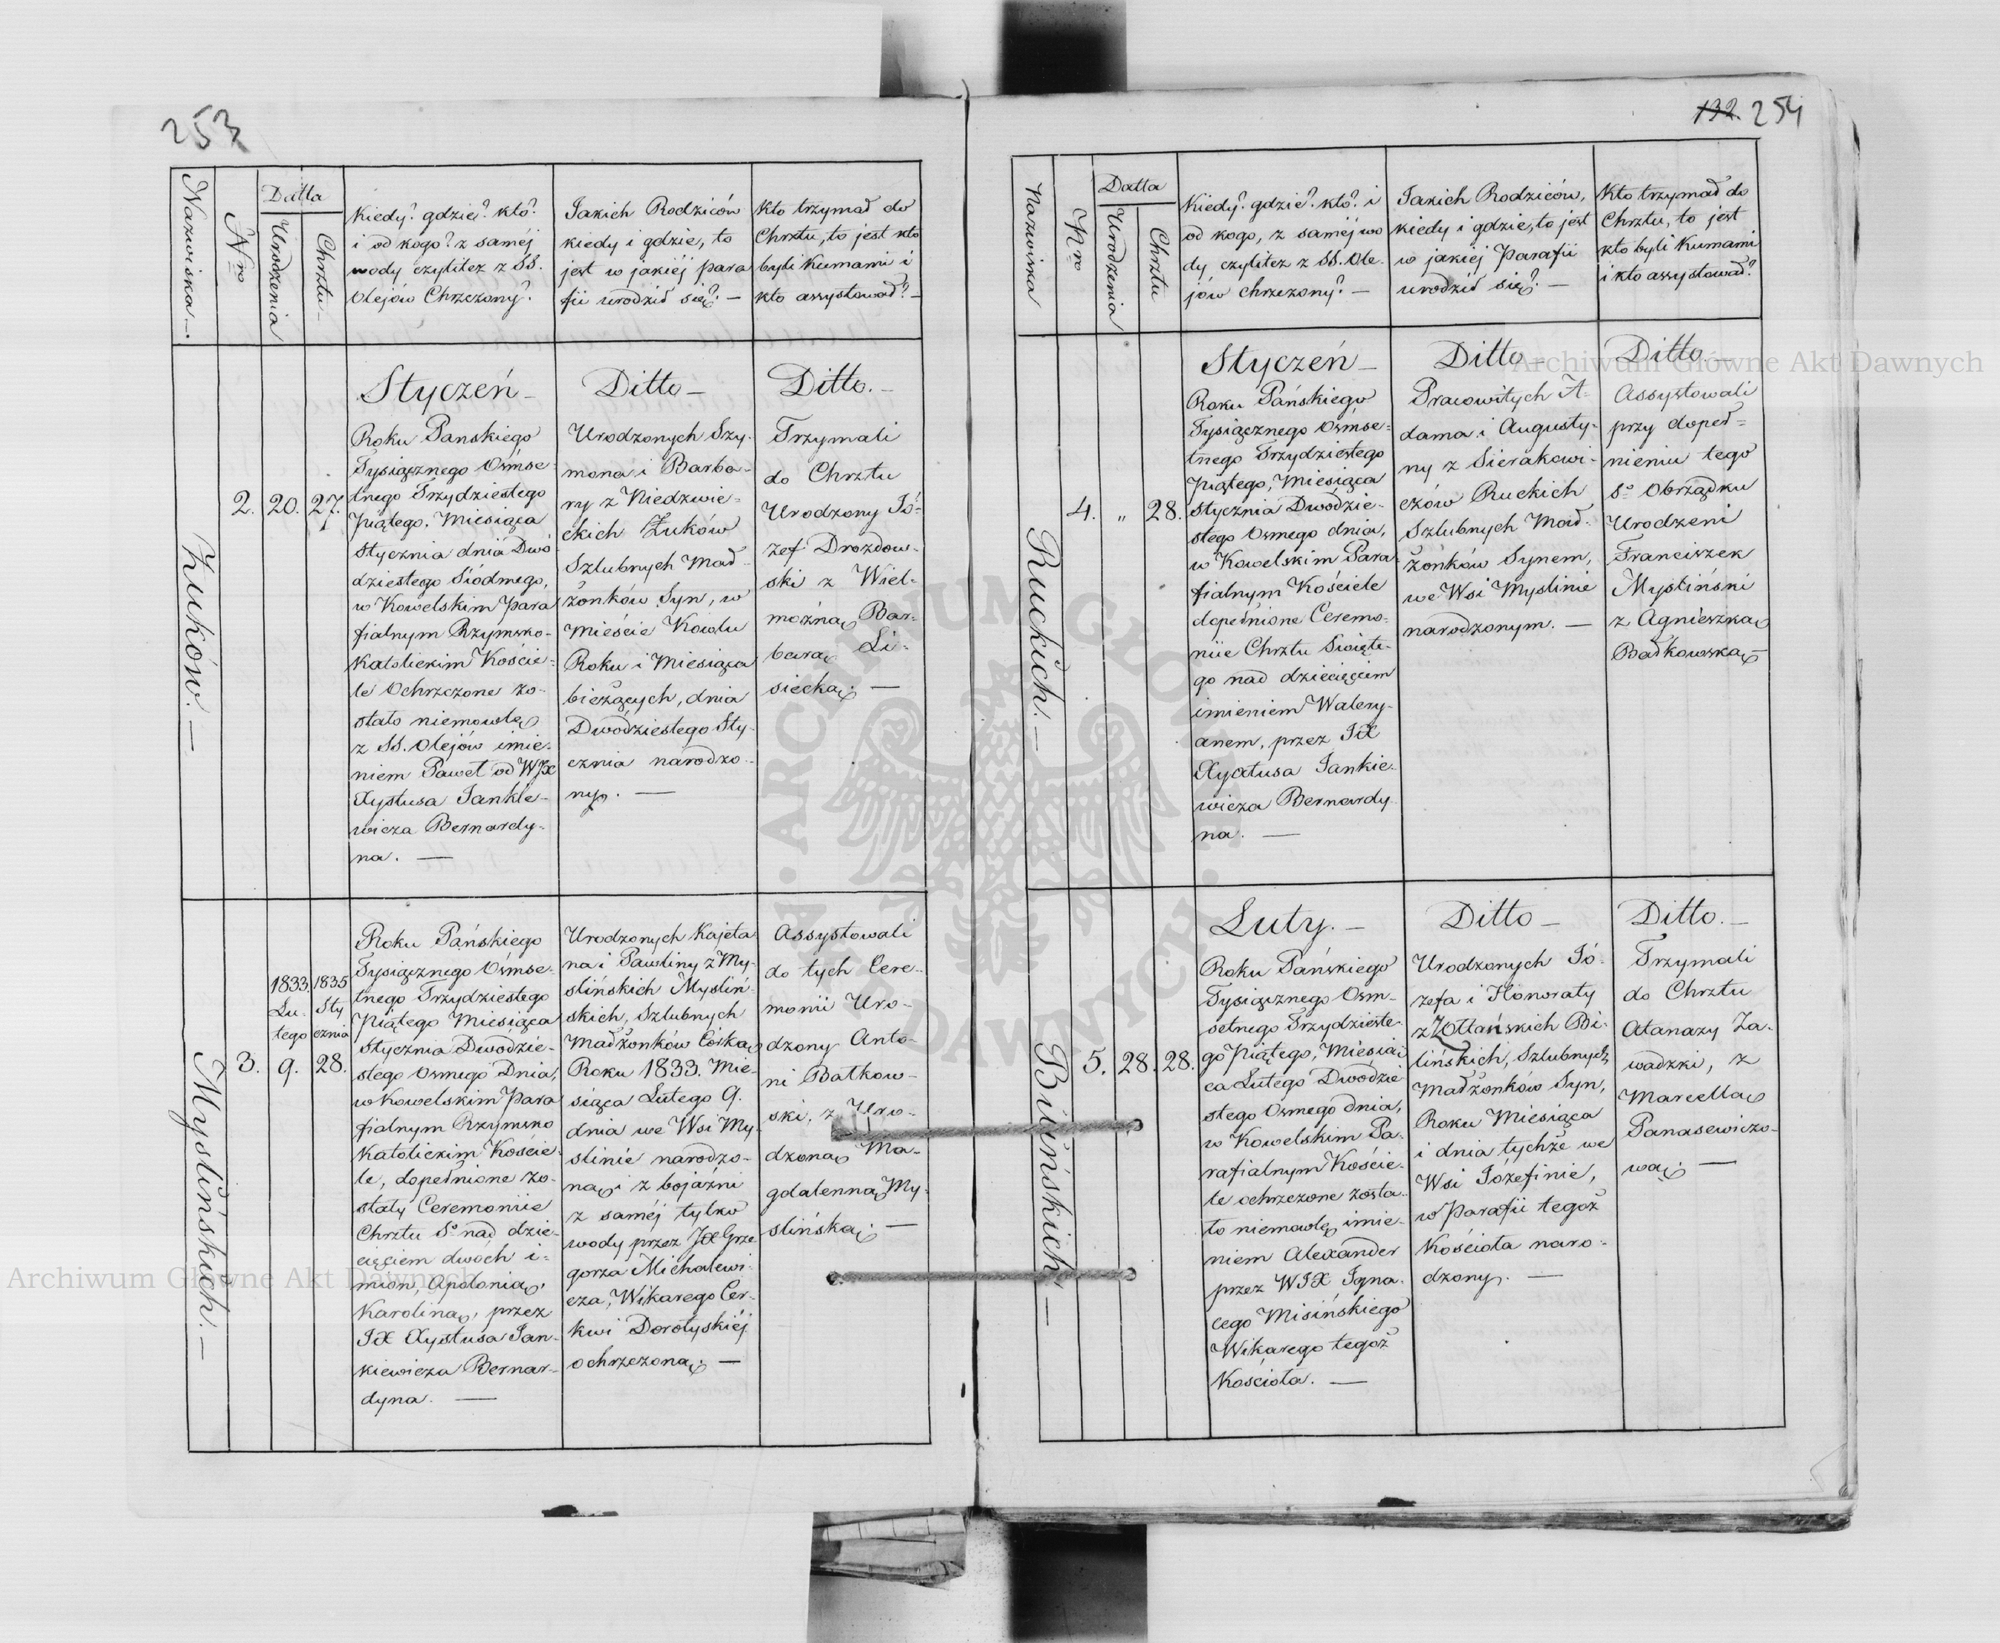 253
Nazwiska.
Nro
Datta
Urodzenia
Chrztu
Kiedy? gdzie? kto?
i od kogo? z saméj
wody czylitez z SS.
Olejów Chrzczony?
Jakich Rodziców
kiedy i gdzie, to
jest w jakiéj para
fii urodził się? —
Kto trzymał do
Chrztu, to jest kto
byli Kumami i
kto assystował? —
Żuków. —
2.
20.
27.
Styczeń —
Roku Panskiego
Tysiącznego Ośmse-
tnego Trzydziestego
Piątego, Miesiąca
Stycznia dnia Dwó
dziestego Siódmego,
w Kowelskim Para
fialnym Rzymsko-
Katolickim Koście-
le Ochrzczone zo-
stało niemowlę
z SS. Olejów imie-
niem Paweł od WJX
Xystusa Jankie-
wicza Bernardy-
na. —
Ditto —
Urodzonych Szy-
mona i Barba-
ry z Niedzwie-
ckich Żuków
Szlubnych Mał-
żonków Syn, w
Mieście Kowlu
Roku i Miesiąca
bieżących, dnia
Dwódziestego Sty-
cznia narodzo-
ny. —
Ditto. —
Trzymali
do Chrztu
Urodzony Jó-
zef Drozdow-
ski z Wiel-
możną Bar-
barą Li-
siecką. —
Myślińskich. —
3.
1833
Lu-
tego
9.
1835
Sty
cznia
28.
Roku Pańskiego
Tysiącznego Ośmse-
tnego Trzydziestego
Piątego Miesiąca
Stycznia Dwódzie-
stego Osmego Dnia,
w Kowelskim Para
fialnym Rzymsko
Katolickim Koście-
le, dopełnione zo-
stały Ceremonije
Chrztu So nad dzie-
cięciem dwóch i-
mion, Apolonią,
Karoliną, przez
JX Xystusa Jan-
kiewicza Bernar-
dyna. —
Urodzonych Kajeta
na i Pawliny z My-
slińskich Mysliń-
skich, Szlubnych
Małżonków Córka,
Roku 1833. Mie-
siąca Lutego 9.
dnia we Wsi My-
slinie narodzo-
na, i z bojaźni
z saméj tylko
wody przez JX Grze
gorza Michalewi-
cza, Wikarego Cer-
kwi Dorotyskiéj
ochrzczona. —
Assystowali
do tych Cere-
monii Uro-
dzony Anto-
ni Batkow-
ski, z Uro-
dzoną Ma-
gdalenną My-
slińską. —
132. 254
Nazwiska
Nro
Datta
Urodzenia
Chrztu
Kiedy? gdzie? kto? i
od kogo, z saméj wo
dy czylitez z SS. Ole-
jów chrzczony? —
Jakich Rodziców,
kiedy i gdzie, to jest
w jakiéj Parafii
urodził się? —
Kto trzymał do
Chrztu, to jest
kto byli Kumami
i kto assystował?
Ruckich. —
4.
"
28.
Styczeń —
Roku Pańskiego
Tysiącznego Osmse-
tnego Trzydziestego
Piątego, Miesiąca
Stycznia Dwodzie-
stego Osmego dnia,
w Kowelskim Para
fialnym Kościele
dopełnione Ceremo-
nije Chrztu Swięte-
go nad dziecięciem
imieniem Walery-
anem, przez JX
Xystusa Jankie-
wicza Bernardy
na. —
Ditto —
Pracowitych A-
dama i Augusty-
ny z Sierakowi-
czów Ruckich
Szlubnych Mał-
żonków Synem,
we Wsi Myslinie
narodzonym. —
Ditto —
Assystowali
przy dopeł-
nieniu tego
So Obrządku
Urodzeni
Franciszek
Mysliński
z Agnieszką
Bałkowską —
Bilińskich. —
5.
28.
28.
Luty. —
Roku Pańskiego
Tysiącznego Osm-
setnego Trzydzieste-
go Piątego, Miesią-
ca Lutego Dwódzie
stego Osmego dnia,
w Kowelskim Pa-
rafialnym Koście-
le ochrzczone zosta-
ło niemowlę imie-
niem Alexander
przez WJX Igna-
cego Misińskiego
Wikarego tegoż
Kościoła. —
Ditto —
Urodzonych Jó-
zefa i Honoraty
z Żółtańskich Bi-
lińskich, Szlubnych
Małżonków Syn,
Roku Miesiąca
i dnia tychże we
Wsi Józefinie,
w Parafii tegoż
Kościoła naro-
dzony. —
Ditto. —
Trzymali
do Chrztu
Atanazy Za-
wadzki, z
Marcellą
Panasewiczo-
wą. —
Archiwum Główne Akt Dawnych
Archiwum Główne Akt Dawnych
ARCHIWUM GŁÓWNE AKT DAWNYCH